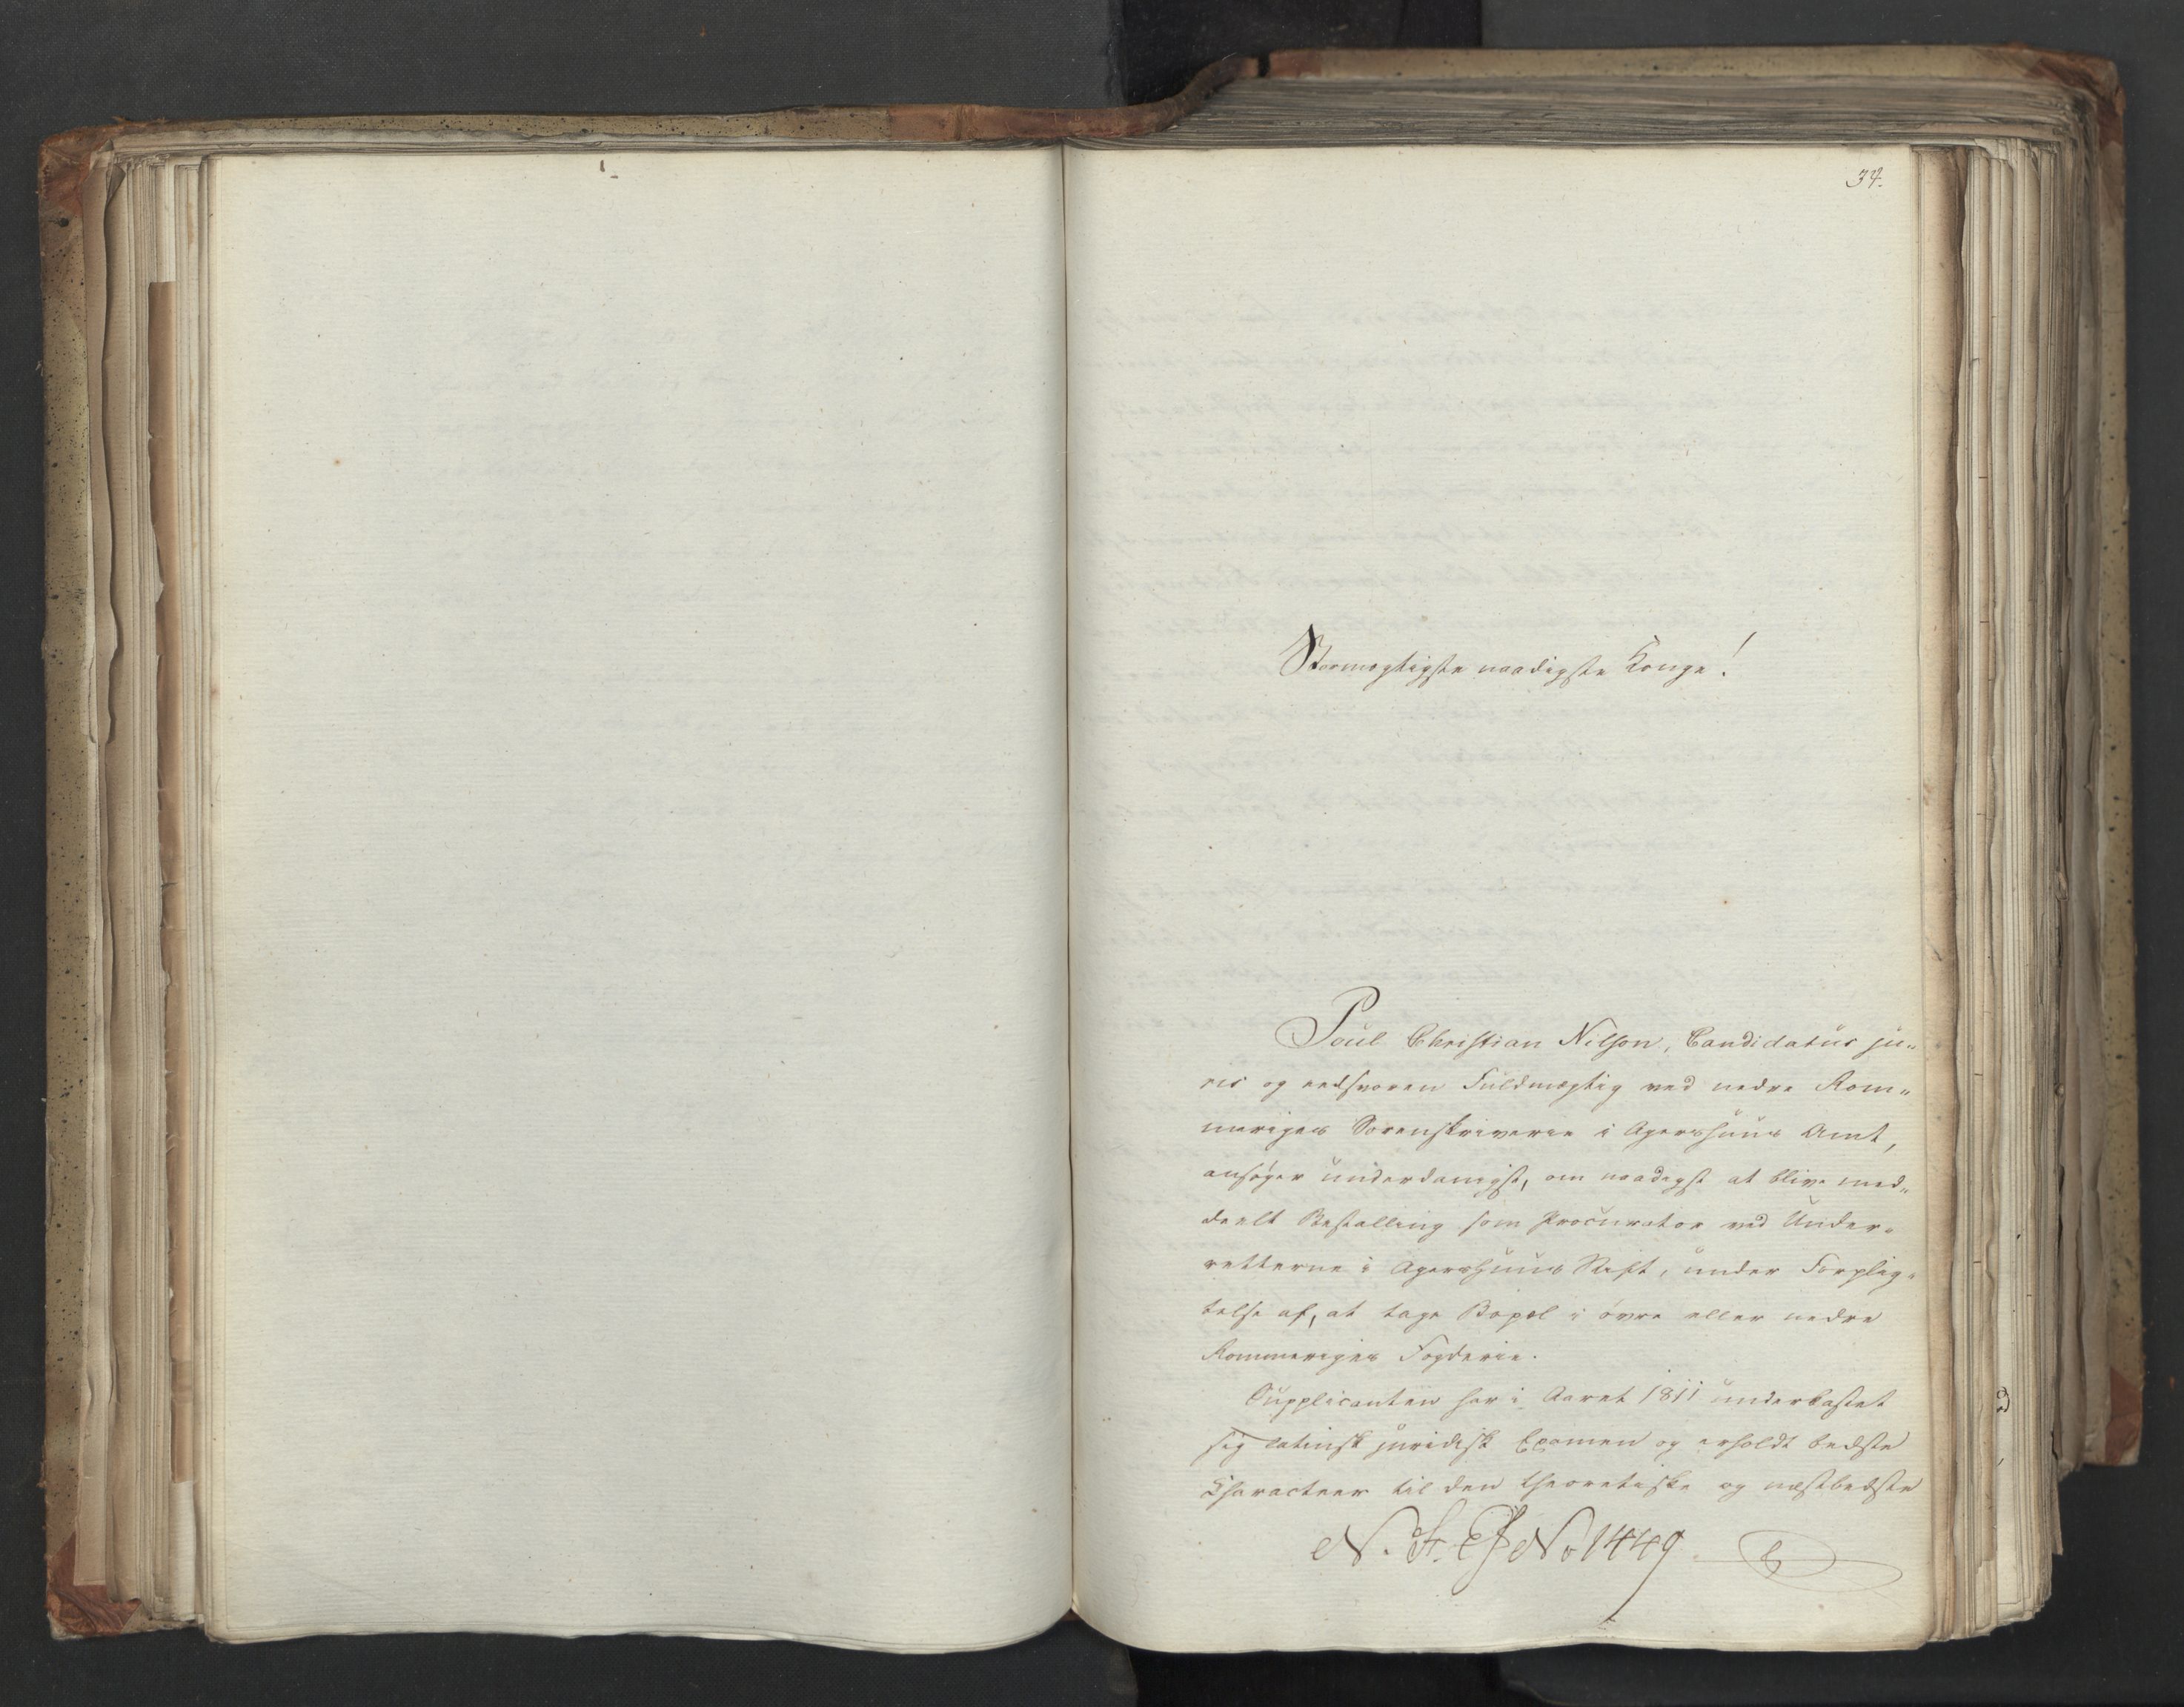 34.
Stormægtigste naadigste Konge!
Poul Christian Nilson, Candidatus ju„
ris og eedsvoren Fuldmægtig ved nedre Rom„
meriges Sorenskriverie i Agershuus Amt,
ansøger underdanigst, om naadigst at blive med„
deelt Bestalling som Procurator ved Under„
retterne i Agershuus Stift, under Forplig„
telse af, at tage Bopæl i øvre eller nedre
Rommeriges Fogderie.
Supplicanten har i Aaret 1811 underkastet
sig latinsk juridisk Examen og erholdt bedste
Characteer til den theoretiske og næstbedste
No 1449